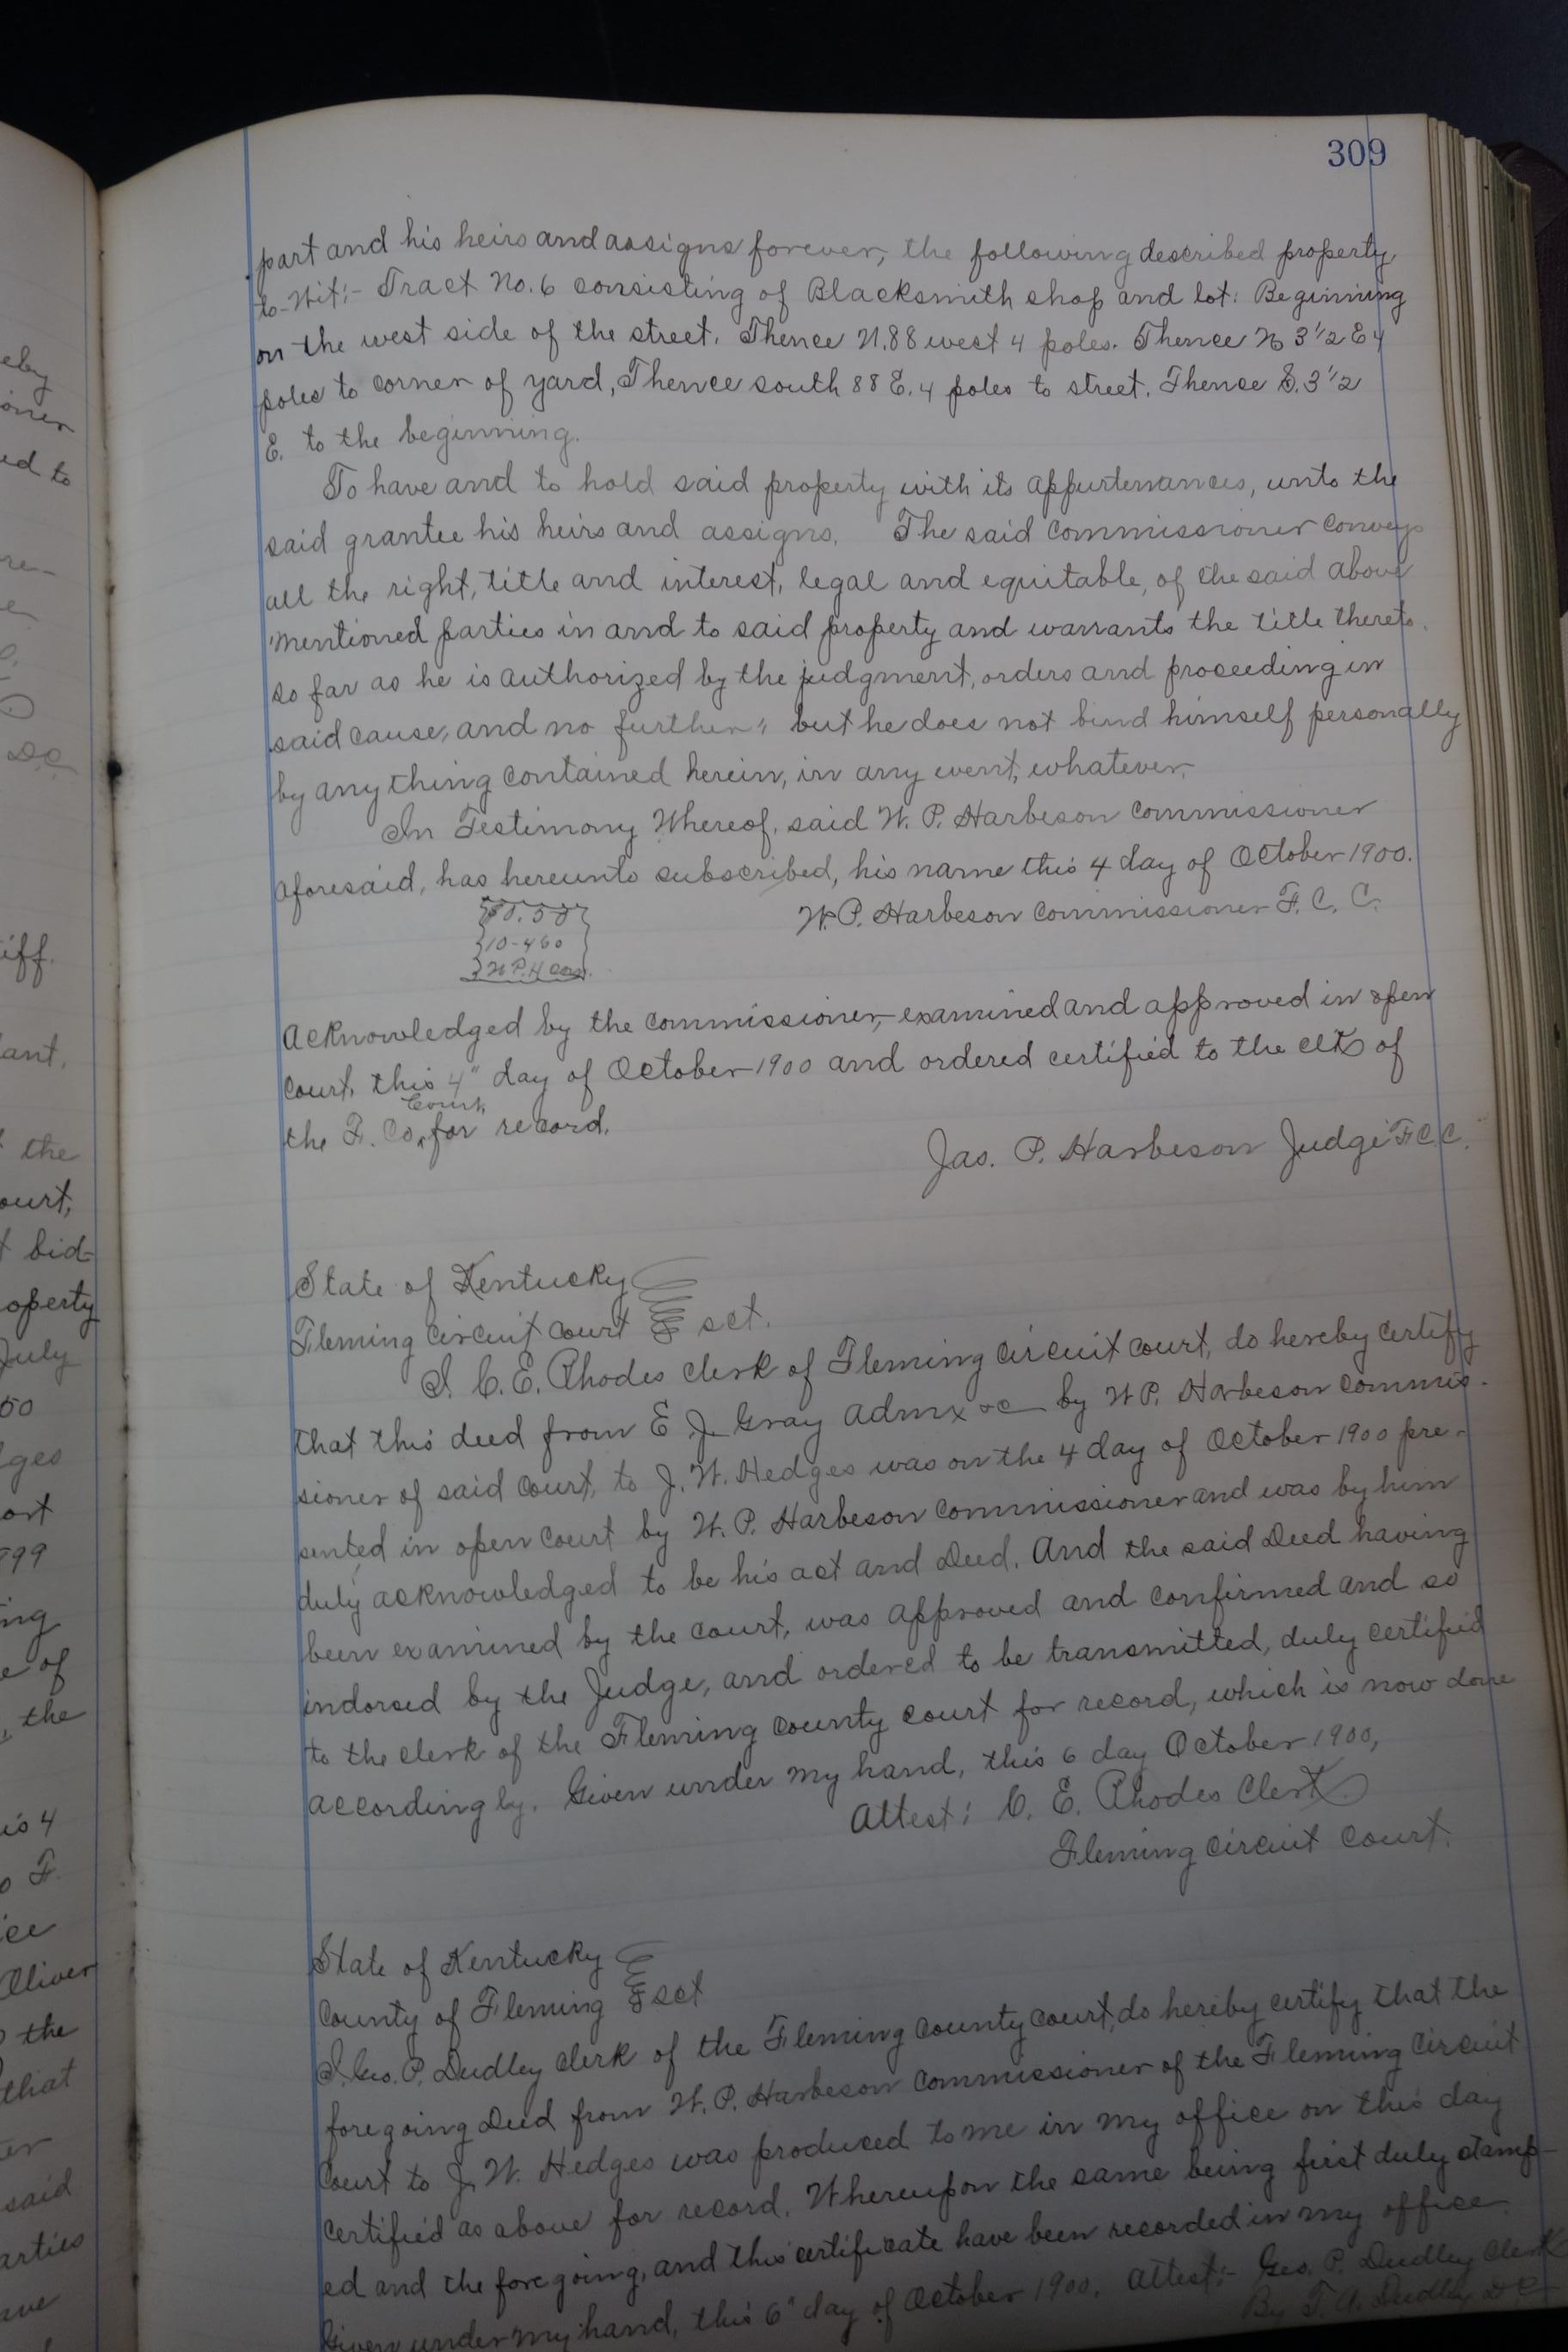 309
part and his heirs and assigns forever, the following described property
to-Wit:- Tract No. 6 consisting of Blacksmith shop and lot: Beginning
on the west side of the street. Thence N. 88 west 4 poles. Thence N 3 1/2 E 4
poles to corner of yard, Thence south 88 E. 4 poles to street. Thence S. 3 1/2
E. to the beginning.
To have and to hold said property with its appurtenances, unto the
said grantee his heirs and assigns. The said Commissioner conveys
all the right, title and interest, legal and equitable, of the said above
mentioned parties in and to said property and warrants the title thereto
so far as he is authorized by the judgment, orders and proceeding in
said cause, and no further; but he does not bind himself personally
by any thing contained herein, in any event, whatever.
In Testimony Whereof, said W. P. Harbeson Commissioner
aforesaid, has hereunto subscribed, his name this 4 day of October 1900.
W. P. Harbeson Commissioner F. C. C.
10-4 60
W P. H Com.
Acknowledged by the commissioner, examined and approved in open
court, this 4" day of October 1900 and ordered certified to the clk of
Court
the F. Co, for record.
Jas. P. Harbeson Judge F C. C.
State of Kentucky
Fleming Circuit Court sct.
I C. E. Rhodes clerk of Fleming circuit court, do hereby certify
that this deed from E J Gray admx &c by W P. Harbeson Commis-
sioner of said court, to J. W. Hedges was on the 4 day of October 1900 pre-
sented in open court by W. P. Harbeson Commissioner and was by him
duly acknowledged to be his act and Deed. And the said Deed having
been examined by the court, was approved and confirmed and so
indorsed by the Judge, and ordered to be transmitted, duly certified
to the clerk of the Fleming county court for record, which is now done
accordingly. Given under my hand, this 6 day October 1900,
Attest: C. E. Rhodes Clerk
Fleming Circuit Court.
State of Kentucky
County of Fleming sct
I. Geo. P. Dudley Clerk of the Fleming County court, do hereby certify that the
foregoing Deed from W. P. Harbeson Commissioner of the Fleming Circuit
Court to J. W. Hedges was produced to me in my office on this day
certified as above for record. Whereupon the same being first duly stamp-
ed and the foregoing, and this certificate have been recorded in my office
Given under my hand, this 6" day of October 1900. Attest:- Geo. P. Dudley Clerk
By T. A. Dudley D C